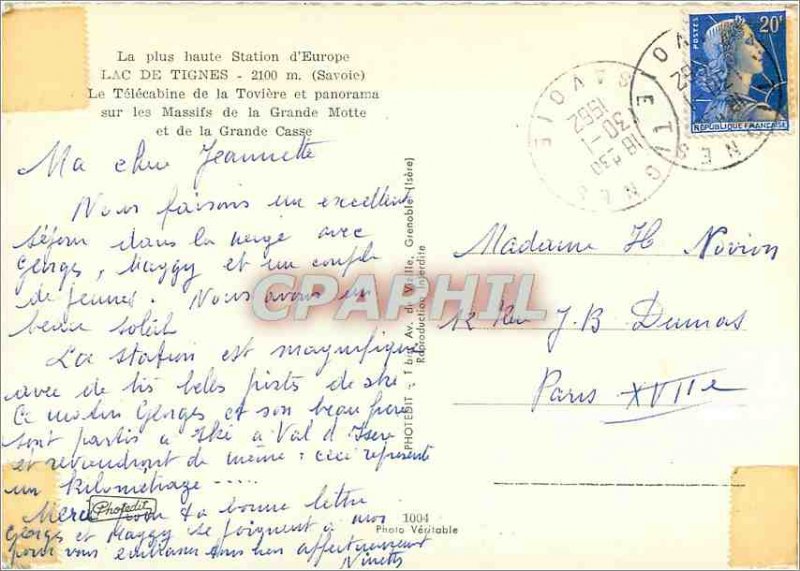 La plus haute Station d'Europe
LAC DE TIGNES - 2100 m. (Savoie)
Le Télécabine de la Tovière et panorama
sur les Massifs de la Grande Motte
et de la Grande Casse
Ma chère Jeannette
Nous faisons un excellent
séjour dans la neige avec
Georges, Maggy et un couple
de jeunes. Nous avons un
beau soleil
La station est magnifique
avec de très belles pistes de ski
Ce matin Georges et son beau frère
sont partis à ski à Val d'Isère
et reviendront de même : ceci représente
un kilométrage .....
Merci pour ta bonne lettre
Georges et Maggy se joignent à moi
pour vous embrasser tous bien affectueusement
Ninette
Photedit
1004
Photo Véritable
PHOTEDIT - 1 bis, Av. de Vizille, Grenoble (Isère)
Reproduction Interdite
CPAPHIL
TIGNES
SAVOIE
18 H 30
30-1
1962
TIGNES
POSTES
20F
REPUBLIQUE FRANÇAISE
Madame H Novion
12 Rue J.B Dumas
Paris XVIIe